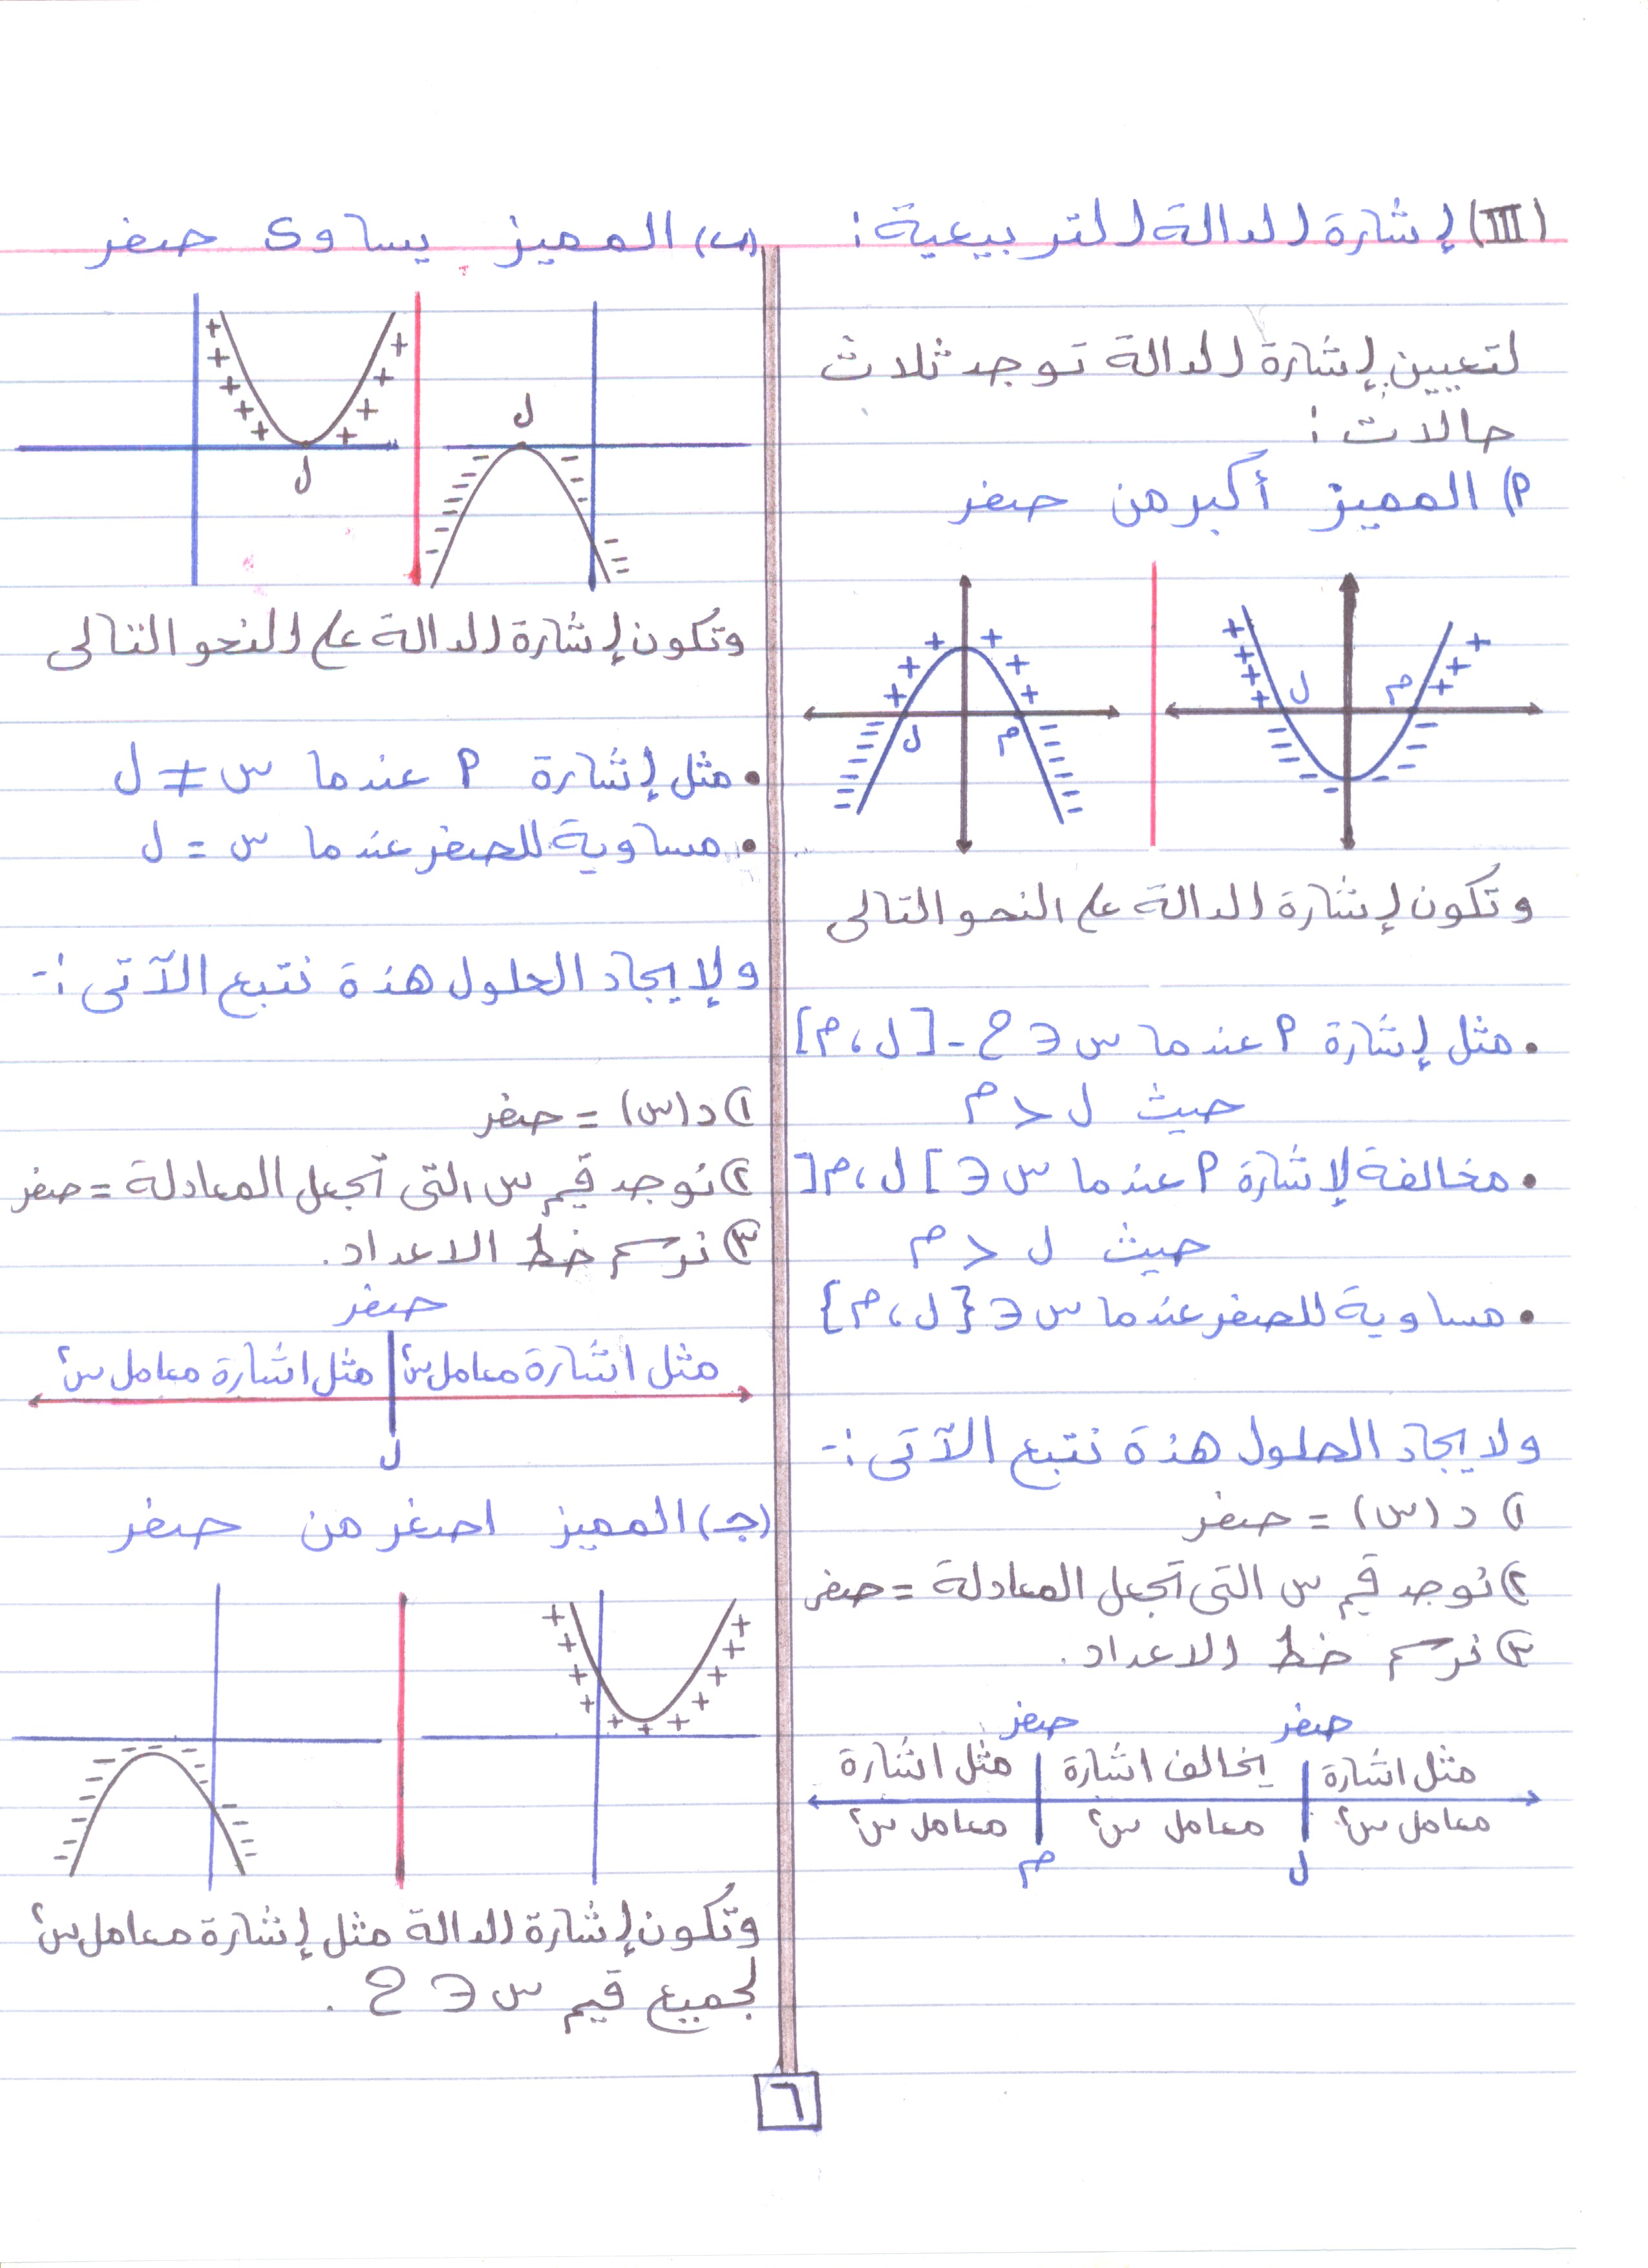 (III) إشارة الدالة التربيعية:
لتعيين إشارة الدالة توجد ثلاث
حالات:
أ) المميز أكبر من صفر
+ + + + ل م + + +
- - - - - - - -
+ + + + + +
ل م
- - - - - - - -
وتكون إشارة الدالة على النحو التالى
• مثل إشارة أ عندما س ∈ ح - [ل، م]
حيث ل < م
• مخالفة لإشارة أ عندما س ∈ ]ل، م[
حيث ل < م
• مساوية للصفر عندما س ∈ {ل، م}
ولايجاد الحلول هذة نتبع الآتى :-
١) د (س) = صفر
٢) نوجد قيم س التى تجعل المعادلة = صفر
٣) نرسم خط الاعداد.
صفر صفر
مثل اشارة يخالف اشارة مثل اشارة
معامل س٢ معامل س٢ معامل س٢
ل م
(ب) المميز يساوى صفر
+ + + + + + + + +
ل
ل
- - - - - - - - - -
وتكون إشارة الدالة على النحو التالى
• مثل إشارة أ عندما س ≠ ل
• مساوية للصفر عندما س = ل
ولإيجاد الحلول هذة نتبع الآتى :-
١) د(س) = صفر
٢) نوجد قيم س التى تجعل المعادلة = صفر
٣) نرسم خط الاعداد.
صفر
مثل اشارة معامل س٢ مثل اشارة معامل س٢
ل
(جـ) المميز اصغر من صفر
+ + + + + + + + + + +
- - - - - - - - - - -
وتكون إشارة الدالة مثل إشارة معامل س٢
لجميع قيم س ∈ ح .
٦